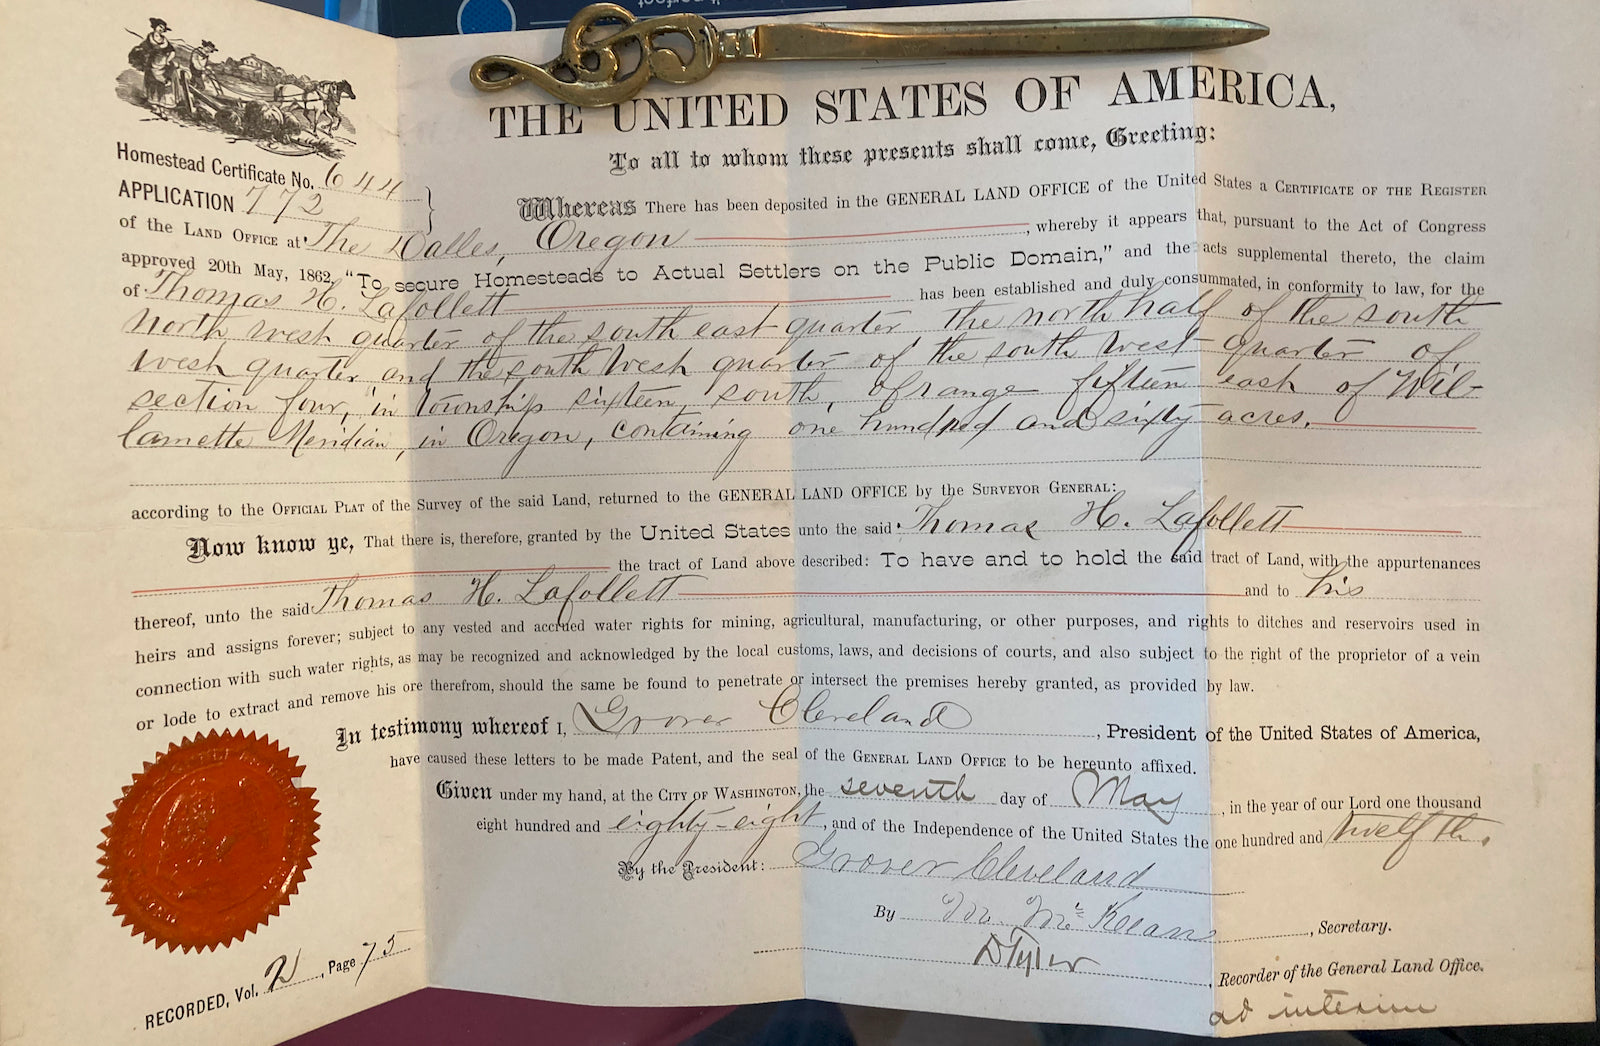 THE UNITED STATES OF AMERICA,
To all to whom these presents shall come, Greeting:
Homestead Certificate No. 644
APPLICATION 772
Whereas There has been deposited in the GENERAL LAND OFFICE of the United States a CERTIFICATE OF THE REGISTER
of the LAND OFFICE at The Dalles, Oregon, whereby it appears that, pursuant to the Act of Congress
approved 20th May, 1862, "To secure Homesteads to Actual Settlers on the Public Domain," and the acts supplemental thereto, the claim
of Thomas H. Lafollett has been established and duly consummated, in conformity to law, for the
North west quarter of the south east quarter the north half of the south
west quarter and the south west quarter of the south west quarter of
section four, in township sixteen, south, of range fifteen east of Wil-
lamette Meridian, in Oregon, containing one hundred and sixty acres.
according to the OFFICIAL PLAT of the Survey of the said Land, returned to the GENERAL LAND OFFICE by the SURVEYOR GENERAL:
Now know ye, That there is, therefore, granted by the United States unto the said Thomas H. Lafollett
the tract of Land above described: To have and to hold the said tract of Land, with the appurtenances
thereof, unto the said Thomas H. Lafollett and to his
heirs and assigns forever; subject to any vested and accrued water rights for mining, agricultural, manufacturing, or other purposes, and rights to ditches and reservoirs used in
connection with such water rights, as may be recognized and acknowledged by the local customs, laws, and decisions of courts, and also subject to the right of the proprietor of a vein
or lode to extract and remove his ore therefrom, should the same be found to penetrate or intersect the premises hereby granted, as provided by law.
In testimony whereof I, Grover Cleveland, President of the United States of America,
have caused these letters to be made Patent, and the seal of the GENERAL LAND OFFICE to be hereunto affixed.
Given under my hand, at the CITY OF WASHINGTON, the seventh day of May, in the year of our Lord one thousand
eight hundred and eighty-eight, and of the Independence of the United States the one hundred and twelfth.
By the President: Grover Cleveland
By M. McKean, Secretary.
D Tyler, Recorder of the General Land Office.
ad interim
RECORDED, Vol. 2, Page 75